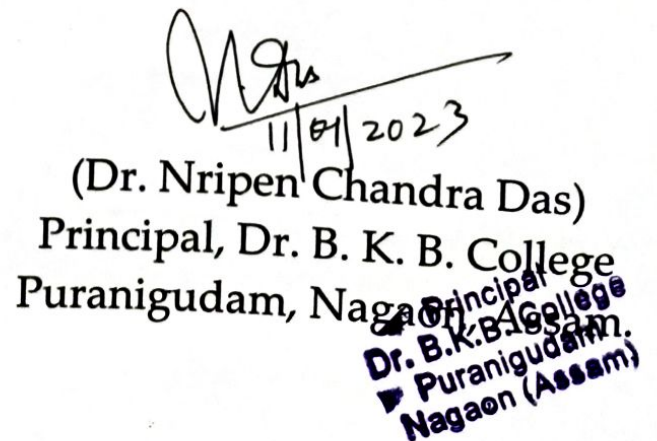 N. Das
11/01/2023
(Dr. Nripen Chandra Das)
Principal, Dr. B. K. B. College
Puranigudam, Nagaon, Assam.
Principal
Dr. B.K.B. College
Puranigudam
Nagaon (Assam)